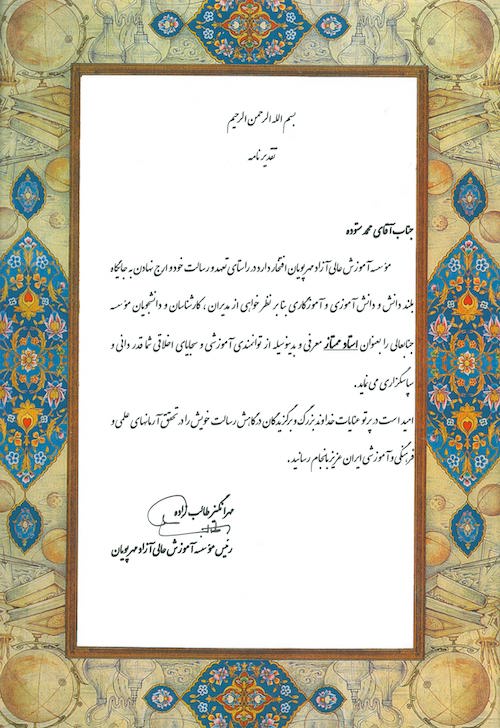 بسم الله الرحمن الرحیم
تقدیرنامه
جناب آقای محمد ستوده
مؤسسه آموزش عالی آزاد مهر پویان افتخار دارد در راستای تعهد و رسالت خود و ارج نهادن به جایگاه
بلند دانش و دانش آموزی و آموزگاری بنا بر نظر خواهی از مدیران ، کارشناسان و دانشجویان مؤسسه
جنابعالی را بعنوان استاد ممتاز معرفی و بدینوسیله از توانمندی آموزشی و سجایای اخلاقی شما قدر دانی و
سپاسگزاری می نماید .
امید است در پرتو عنایات خداوند بزرگ و برگزیدگان درگاهش رسالت خویش را در تحقق آرمانهای علمی و
فرهنگی و آموزشی ایران عزیز بانجام رسانید .
مهرانگیز طالب زاده
رئیس مؤسسه آموزش عالی آزاد مهر پویان